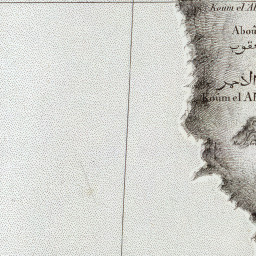 Koum el A
Aboû
عقوب
الأحمر
Koûm el A